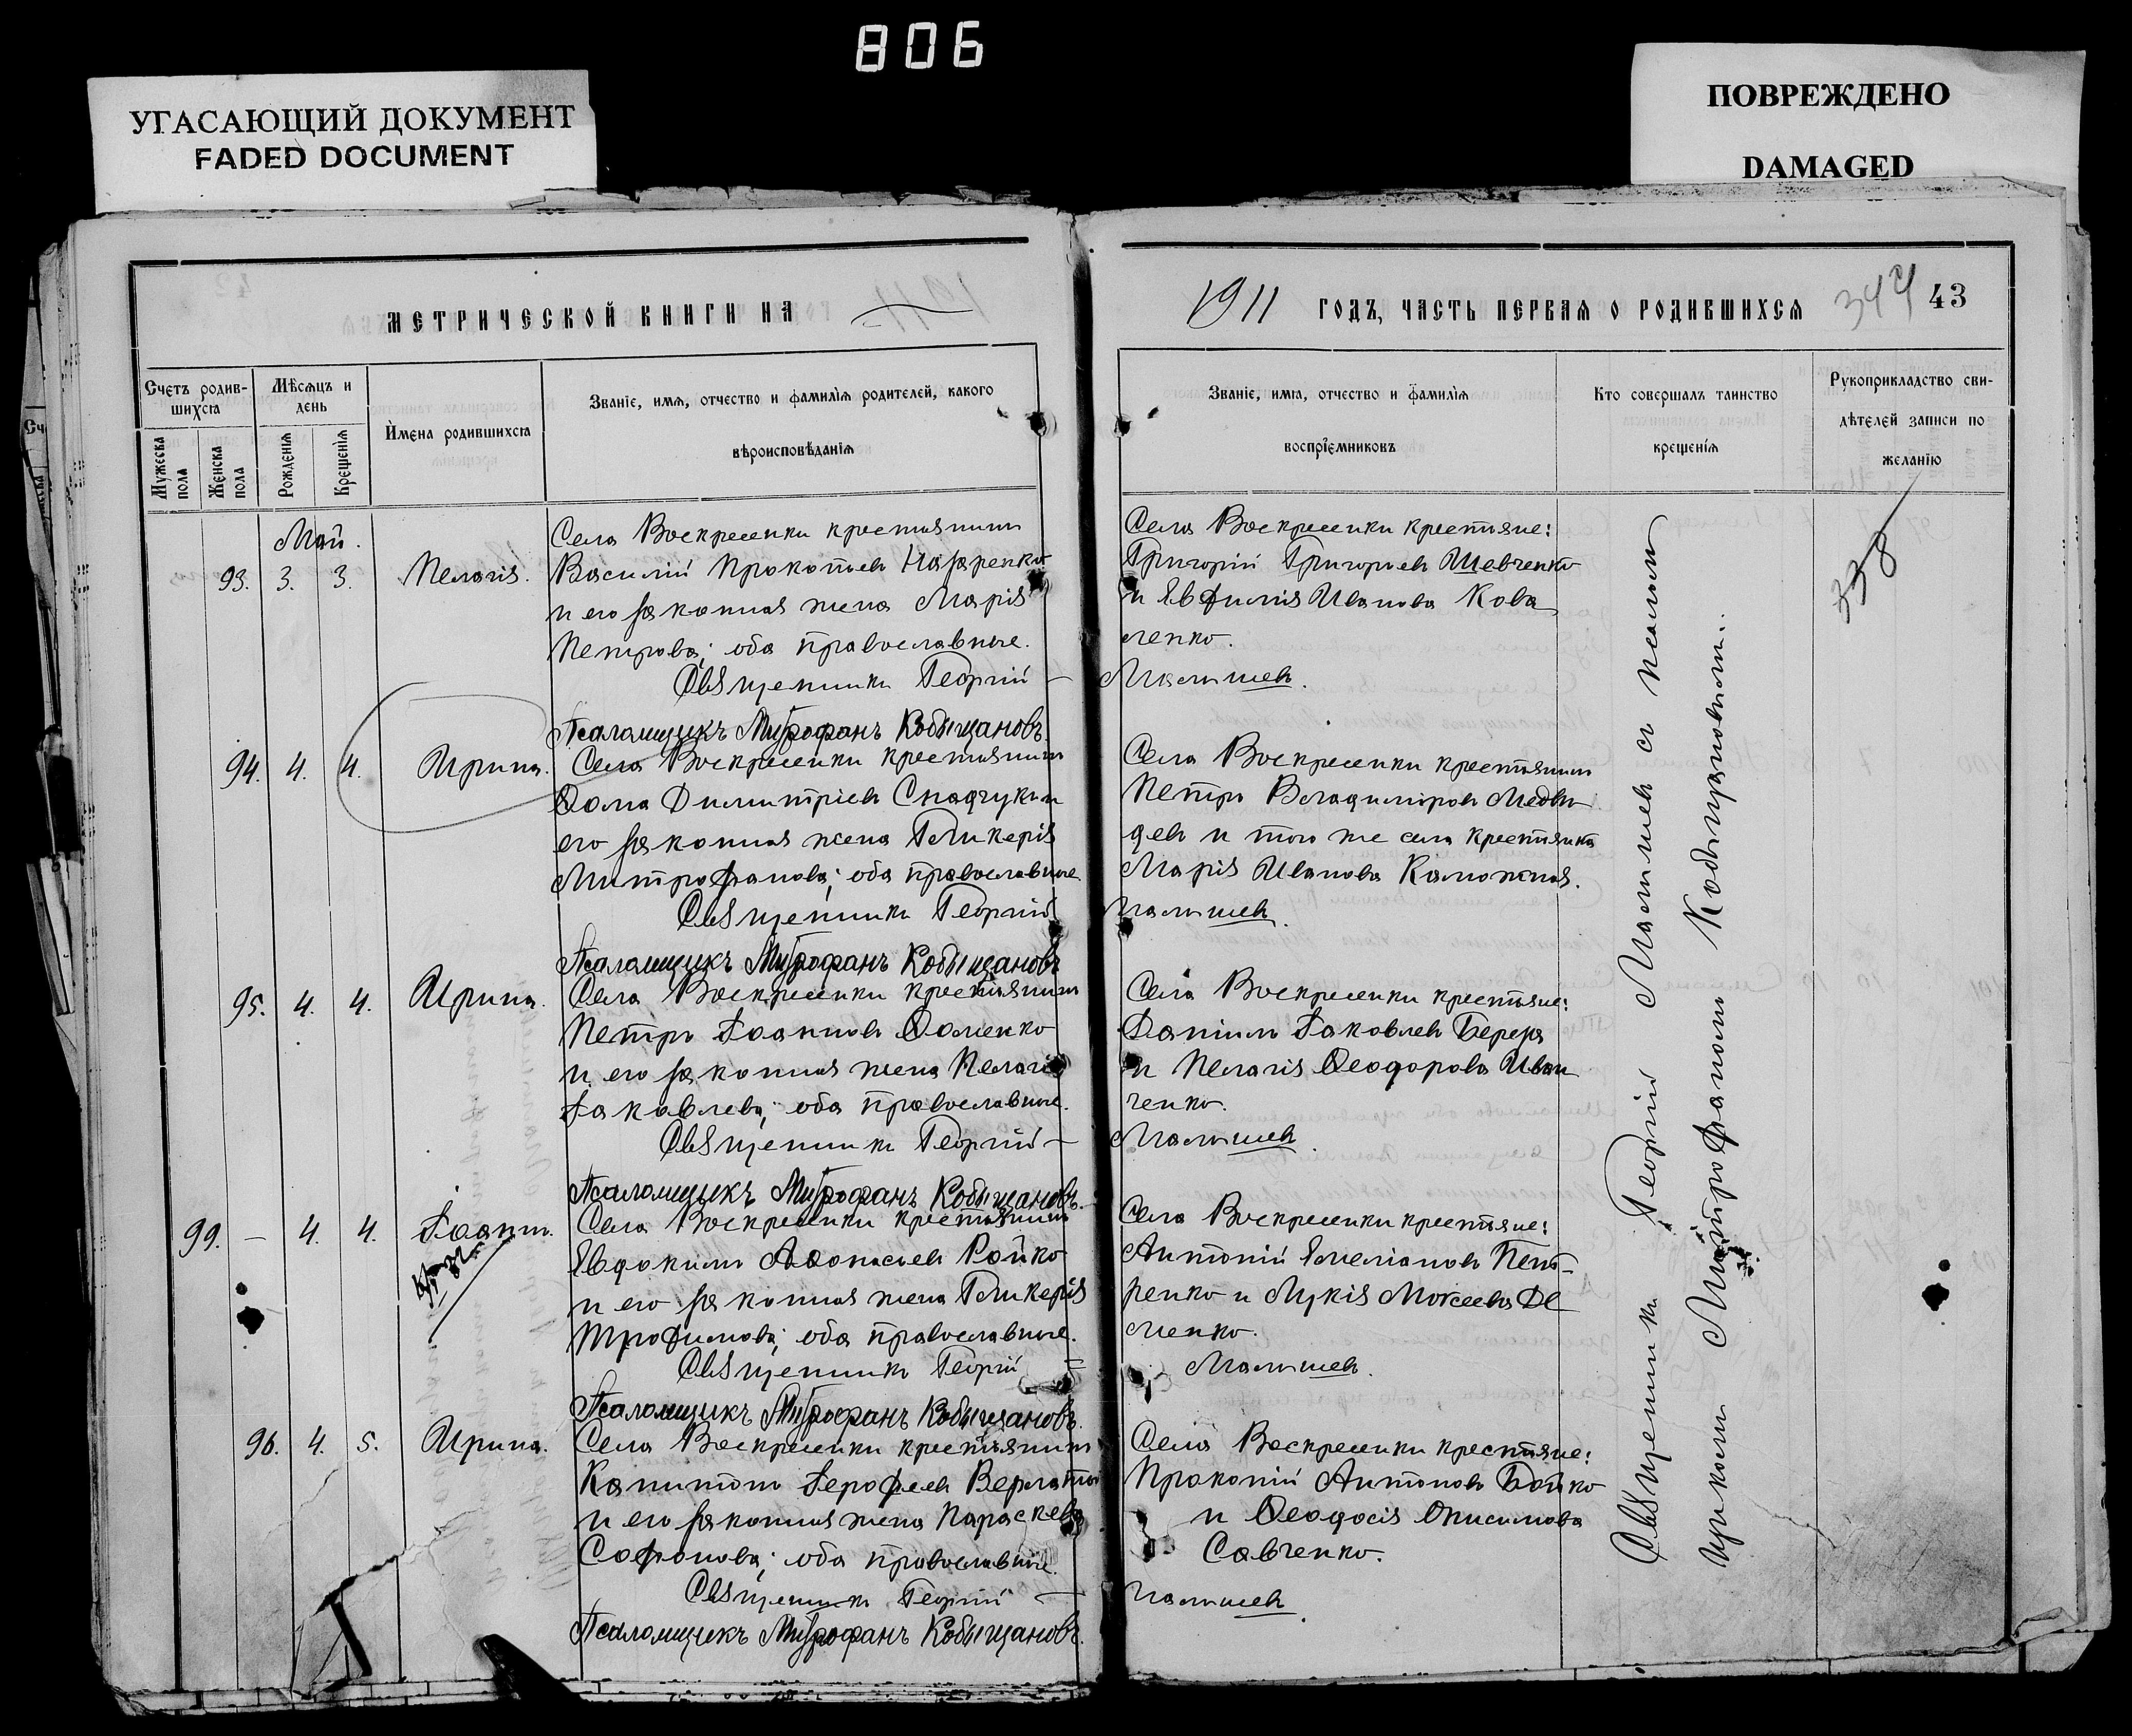 806
УГАСАЮЩИЙ ДОКУМЕНТ
FADED DOCUMENT
ПОВРЕЖДЕНО
DAMAGED
МЕТРИЧЕСКОЙ КНИГИ НА
1911 ГОДЪ, ЧАСТЬ ПЕРВАЯ О РОДИВШИХСЯ
344 43
Счетъ родив-
шихся
Мужеска пола
Женска пола
Мѣсяцъ и
день
Рожденія
Крещенія
Имена родившихся
Званіе, имя, отчество и фамилія родителей, какого
вѣроисповѣданія
Званіе, имя, отчество и фамилія
воспріемниковъ
Кто совершалъ таинство
крещенія
Рукоприкладство сви-
дѣтелей записи по
желанію
Май.
93. 3. 3. Пелагія.
Села Воскресенки крестьянинъ
Василій Прокопьев
и его законная жена Марія
Петрова; оба православные.
Священникъ Георгій
Псаломщикъ Митрофанъ Кобыщановъ.
Села Воскресенки крестьяне:
Григорій Григорьевъ Шевченко
и Евфимія Иванова Кова
ленко.
Малышевъ.
338
94. 4. 4. Ирина.
Села Воскресенки крестьянинъ
Ѳома Димитріевъ Снадчук и
его законная жена Гликерія
Митрофанова; оба православные
Священникъ Георгій
Псаломщикъ Митрофанъ Кобыщановъ
Села Воскресенки крестьянинъ
Петръ Владиміровъ Медви
девъ и того же села крестьянка
Марія Иванова Каложная.
Малышевъ.
95. 4. 4. Ирина.
Села Воскресенки крестьянинъ
Петръ Іоанновъ Ѳоменко
и его законная жена Пелагія
Іаковлева; оба православные.
Священникъ Георгій
Псаломщикъ Митрофанъ Кобыщановъ.
Села Воскресенки крестьяне:
Даніилъ Іаковлевъ Береза
и Пелагія Ѳеодорова Иван
ченко.
Малышевъ.
99. — 4. 4. Іоаннъ.
Села Воскресенки крестьянинъ
Евдокимъ Аѳонасьевъ Ройко
и его законная жена Гликерія
Трофимова; оба православные.
Священникъ Георгій
Псаломщикъ Митрофанъ Кобыщановъ.
Села Воскресенки крестьяне:
Антоній Емеліановъ Пет-
ренко и Лукія Моѵсеева Де
менко.
Малышевъ.
96. 4. 5. Ирина.
Села Воскресенки крестьянинъ
Капитонъ Іерофеевъ
и его законная жена Параскева
Софонова; оба православные.
Священникъ Георгій
Псаломщикъ Митрофанъ Кобыщановъ.
Села Воскресенки крестьяне:
Прокопій Антоновъ Бойко
и Ѳеодосія Онисимова
Савченко.
Малышевъ.
Священникъ Георгій Малышевъ съ псалом
щикомъ Митрофаномъ Кобыщановымъ.